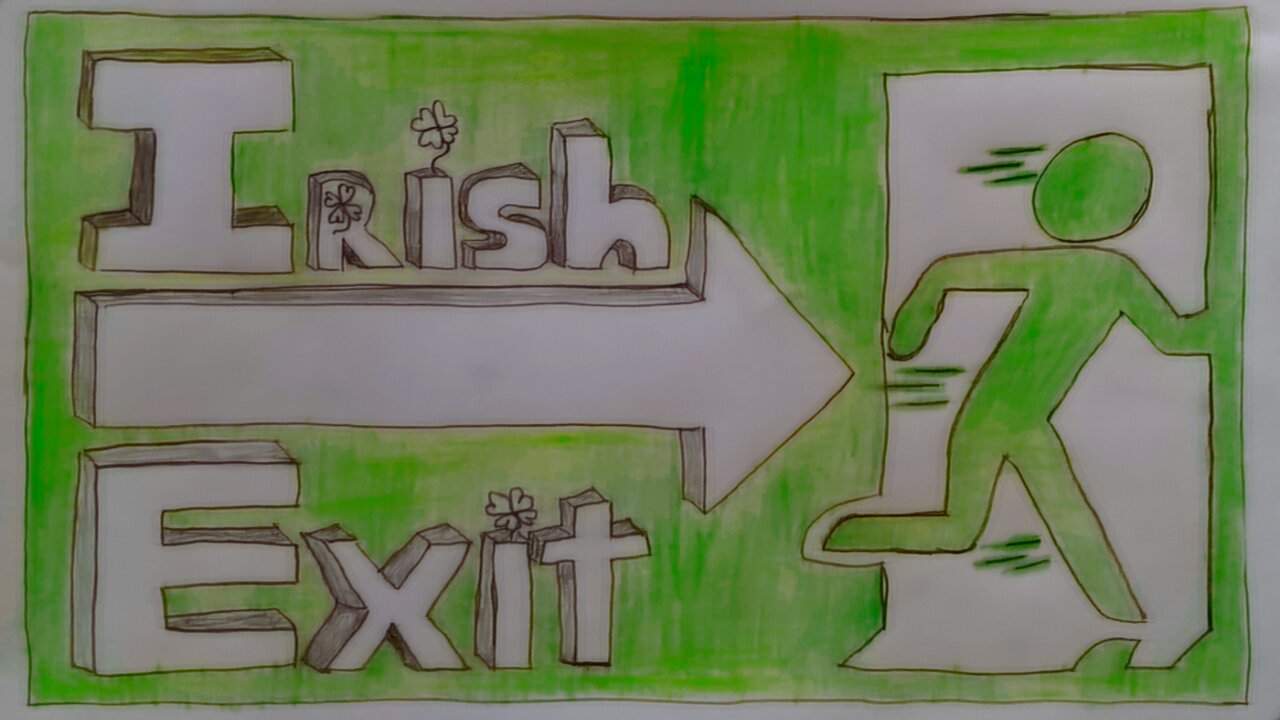 Irish
Exit